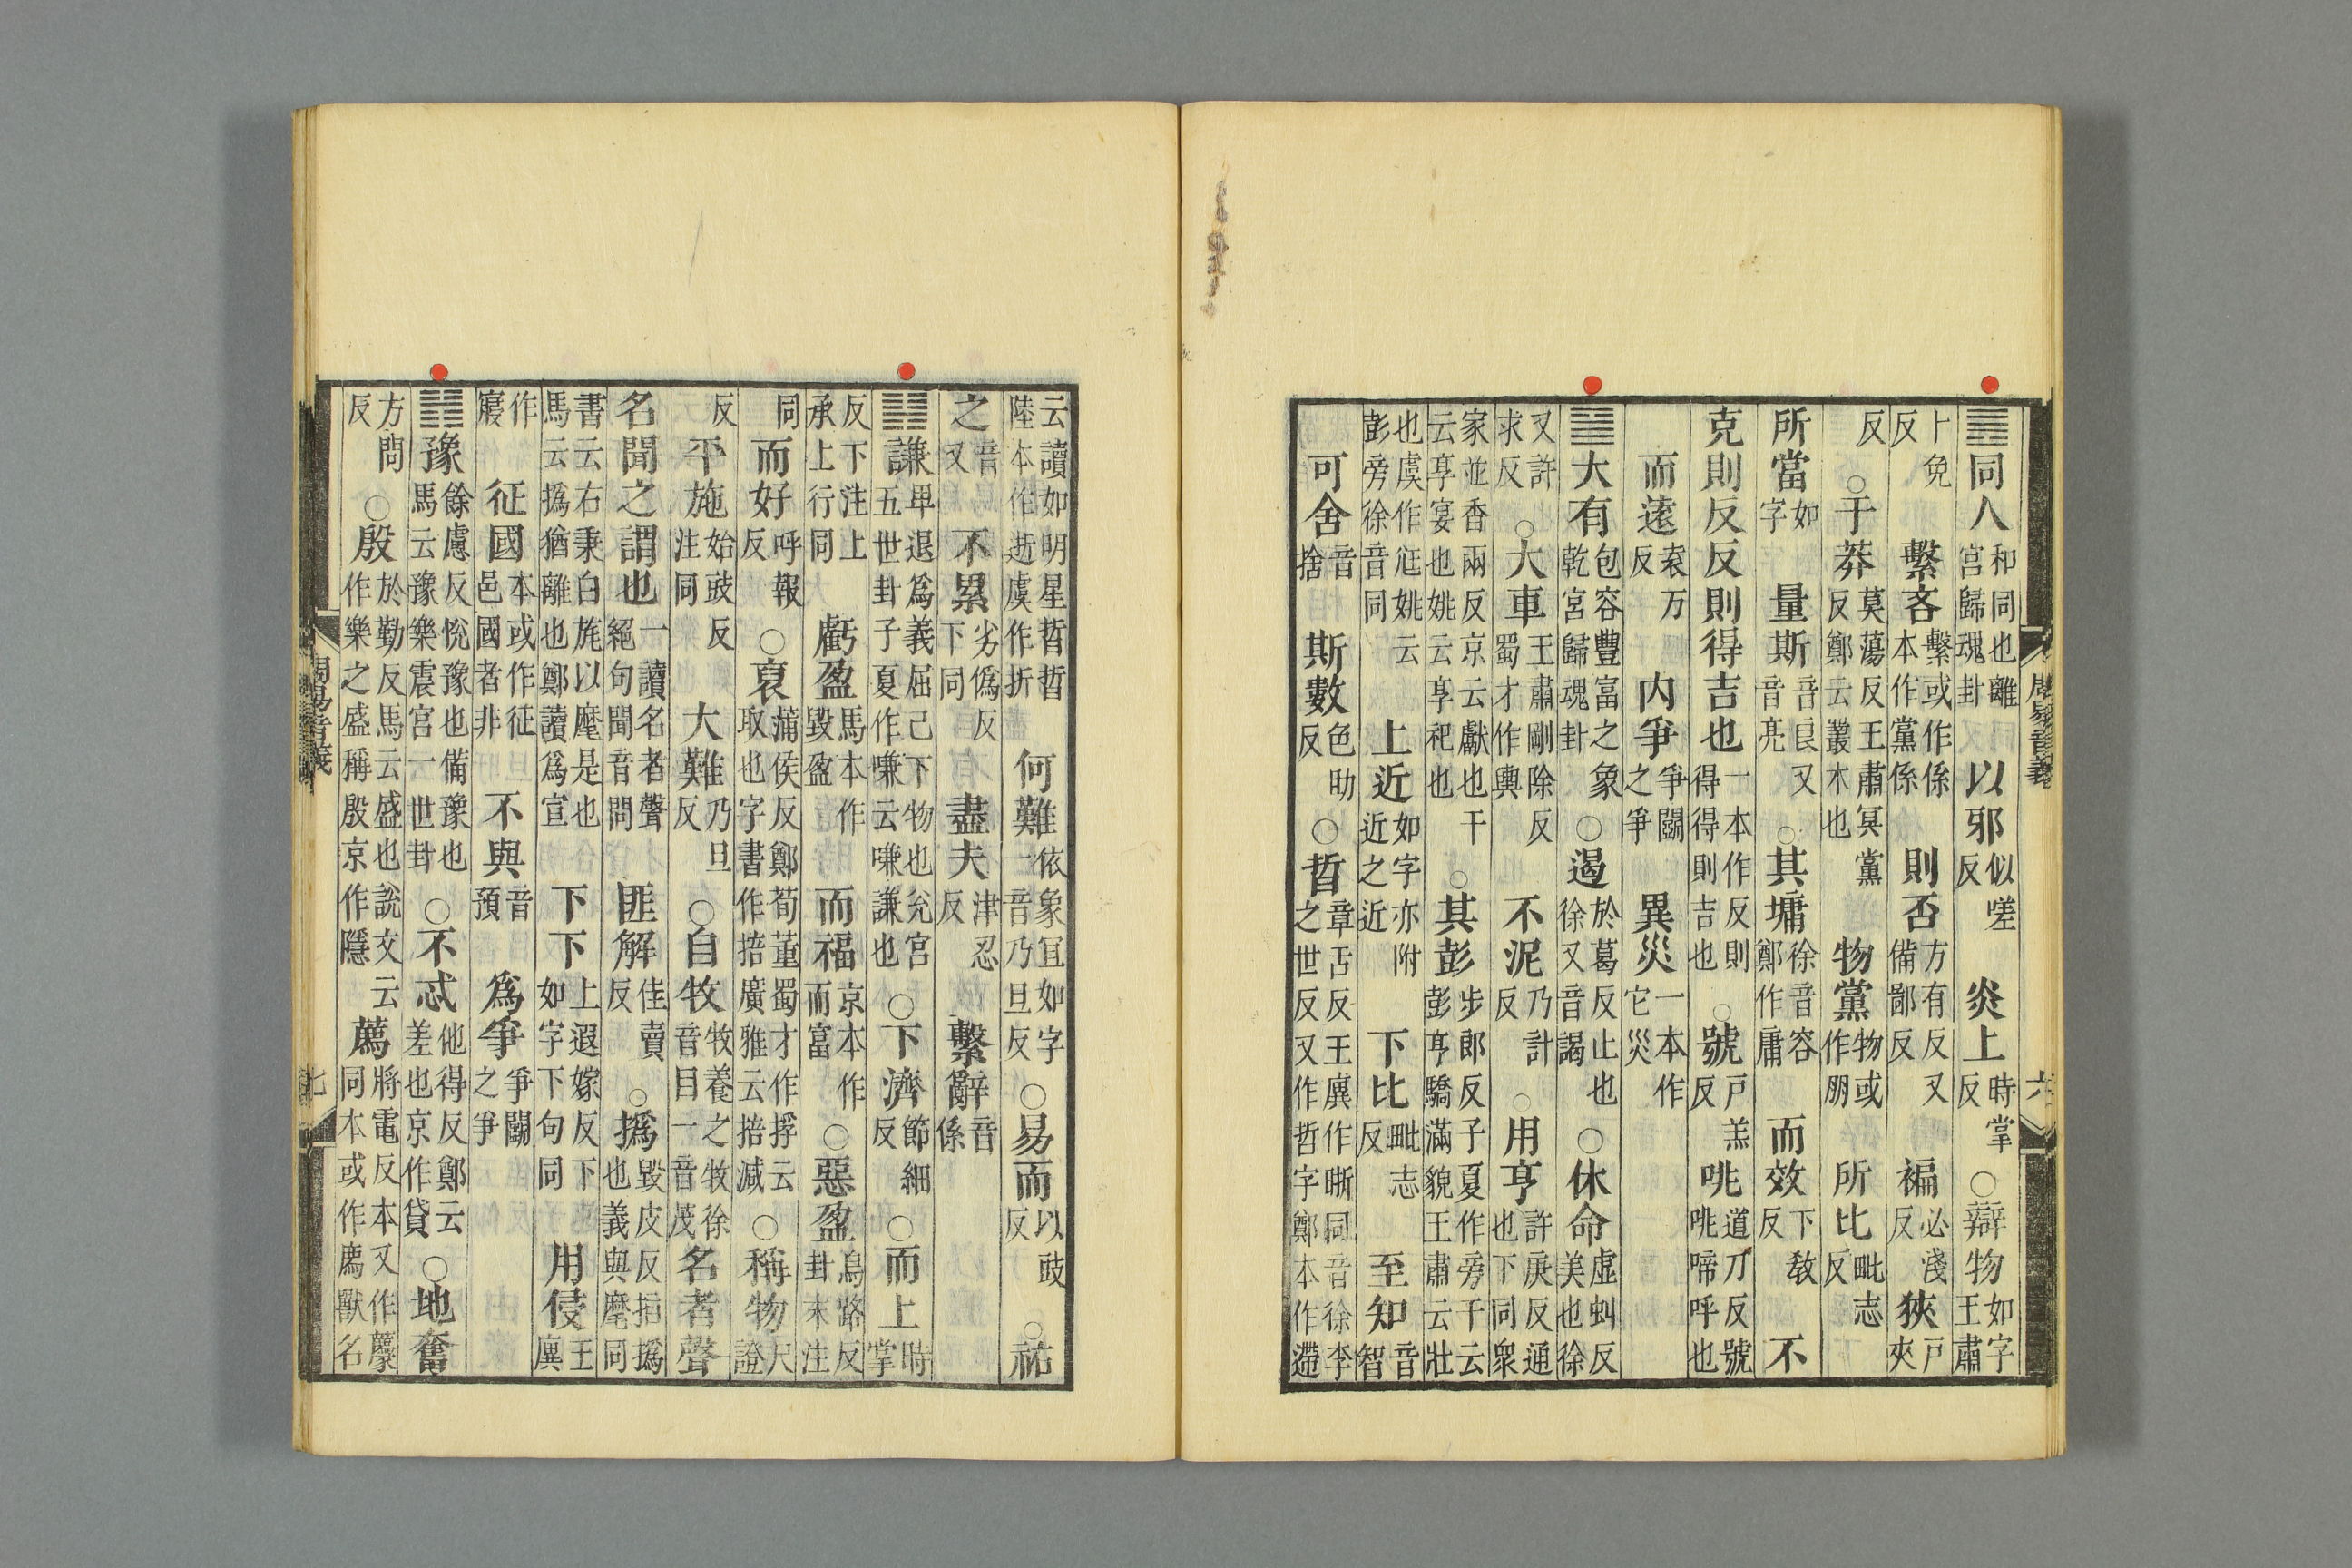 ䷌同人和同也離宮歸魂封以邪似嗟反炎上時掌反○辯物如字王肅
卜免反繫吝繫或作係本作黨係則否方有反又備鄙反褊必淺反狹戶夾
反○于莽莫蕩反王肅冥黨反鄭云叢木也物黨物或作朋所比毗志反
所當如字量斯音良又音亮○其墉徐音容鄭作庸而效下教反不
克則反反則得吉也一本作反則得得則吉也○號戶羔反咷道刀反號咷啼呼也
而遠袁万反内爭爭鬭之爭異災一本作它災
䷍大有包容豐富之象乾宮歸魂封○遏於葛反止也徐又音謁○休命虛虯反美也徐
又許求反○大車王肅剛除反蜀才作輿不泥乃計反○用亨許庚反通也下同衆
家並香兩反京云獻也干云享宴也姚云享祀也○其彭步郎反子夏作旁干云彭亨驕滿貌王肅云壯
也虞作尫姚云彭旁徐音同上近如字亦附近之近下比毗志反至知音智
可舍音捨斯數色助反○晢章舌反王廙作晰同音徐李之世反又作哲字鄭本作遰
周易音義
六
云讀如明星晢晢陸本作逝虞作折何難依象宜如字一音乃旦反○易而以豉反○祐
之音又不累劣偽反下同盡夫津忍反繫辭音係
䷎謙卑退爲義屈己下物也兊宮五世卦子夏作嗛云嗛謙也○下濟節細反○而上時掌
反下注上承上行同虧盈馬本作毀盈而福京本作而富○惡盈烏路反卦末注
同而好呼報反○裒蒲侯反鄭荀董蜀才作捊云取也字書作掊廣雅云掊減○稱物尺證
反平施始豉反注同大難乃旦反○自牧牧養之牧徐音目一音茂名者聲
名聞之謂也一讀名者聲絕句聞音問匪解佳賣反○撝毀皮反指撝也義與麾同
書云右秉白旄以麾是也馬云撝猶離也鄭讀爲宣下下上遐嫁反下如字下句同用侵王廙
作寑征國本或作征邑國者非不與音預爲爭爭鬭之爭
䷏豫餘慮反悅豫也備豫也馬云豫樂震宮一世卦○不忒他得反鄭云差也京作貸○地奮
方問反○殷於勤反馬云盛也說文云作樂之盛稱殷京作隱薦將電反本又作𧂐同本或作廌獸名
周易音義
七